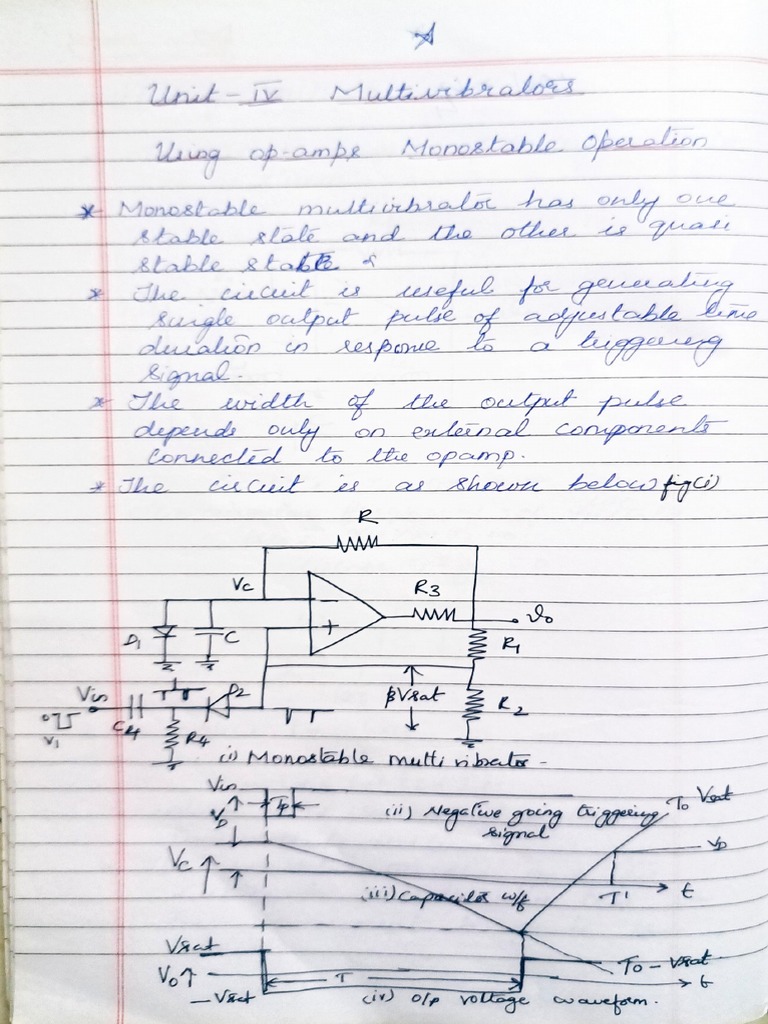 Unit - IV Multivibrators
Using op-amps Monostable Operation
* Monostable multivibrator has only one
stable state and the other is quasi
stable state
* The circuit is useful for generating
single output pulse of adjustable time
duration in response to a triggering
signal.
* The width of the output pulse
depends only on external components
connected to the opamp.
* The circuit is as shown below fig(i)
R
Vc
R3
D1
C
−
+
vo
R1
Vin
D2
βVsat
R2
V1
C4
R4
(i) Monostable multi vibrator -
Vin
Tp
(ii) Negative going triggering
signal
To Vsat
VD
VD
Vc
(iii) Capacitor w/f
T'
t
Vsat
Vo
T
To - Vsat
-Vsat
(iv) o/p voltage waveform.
t